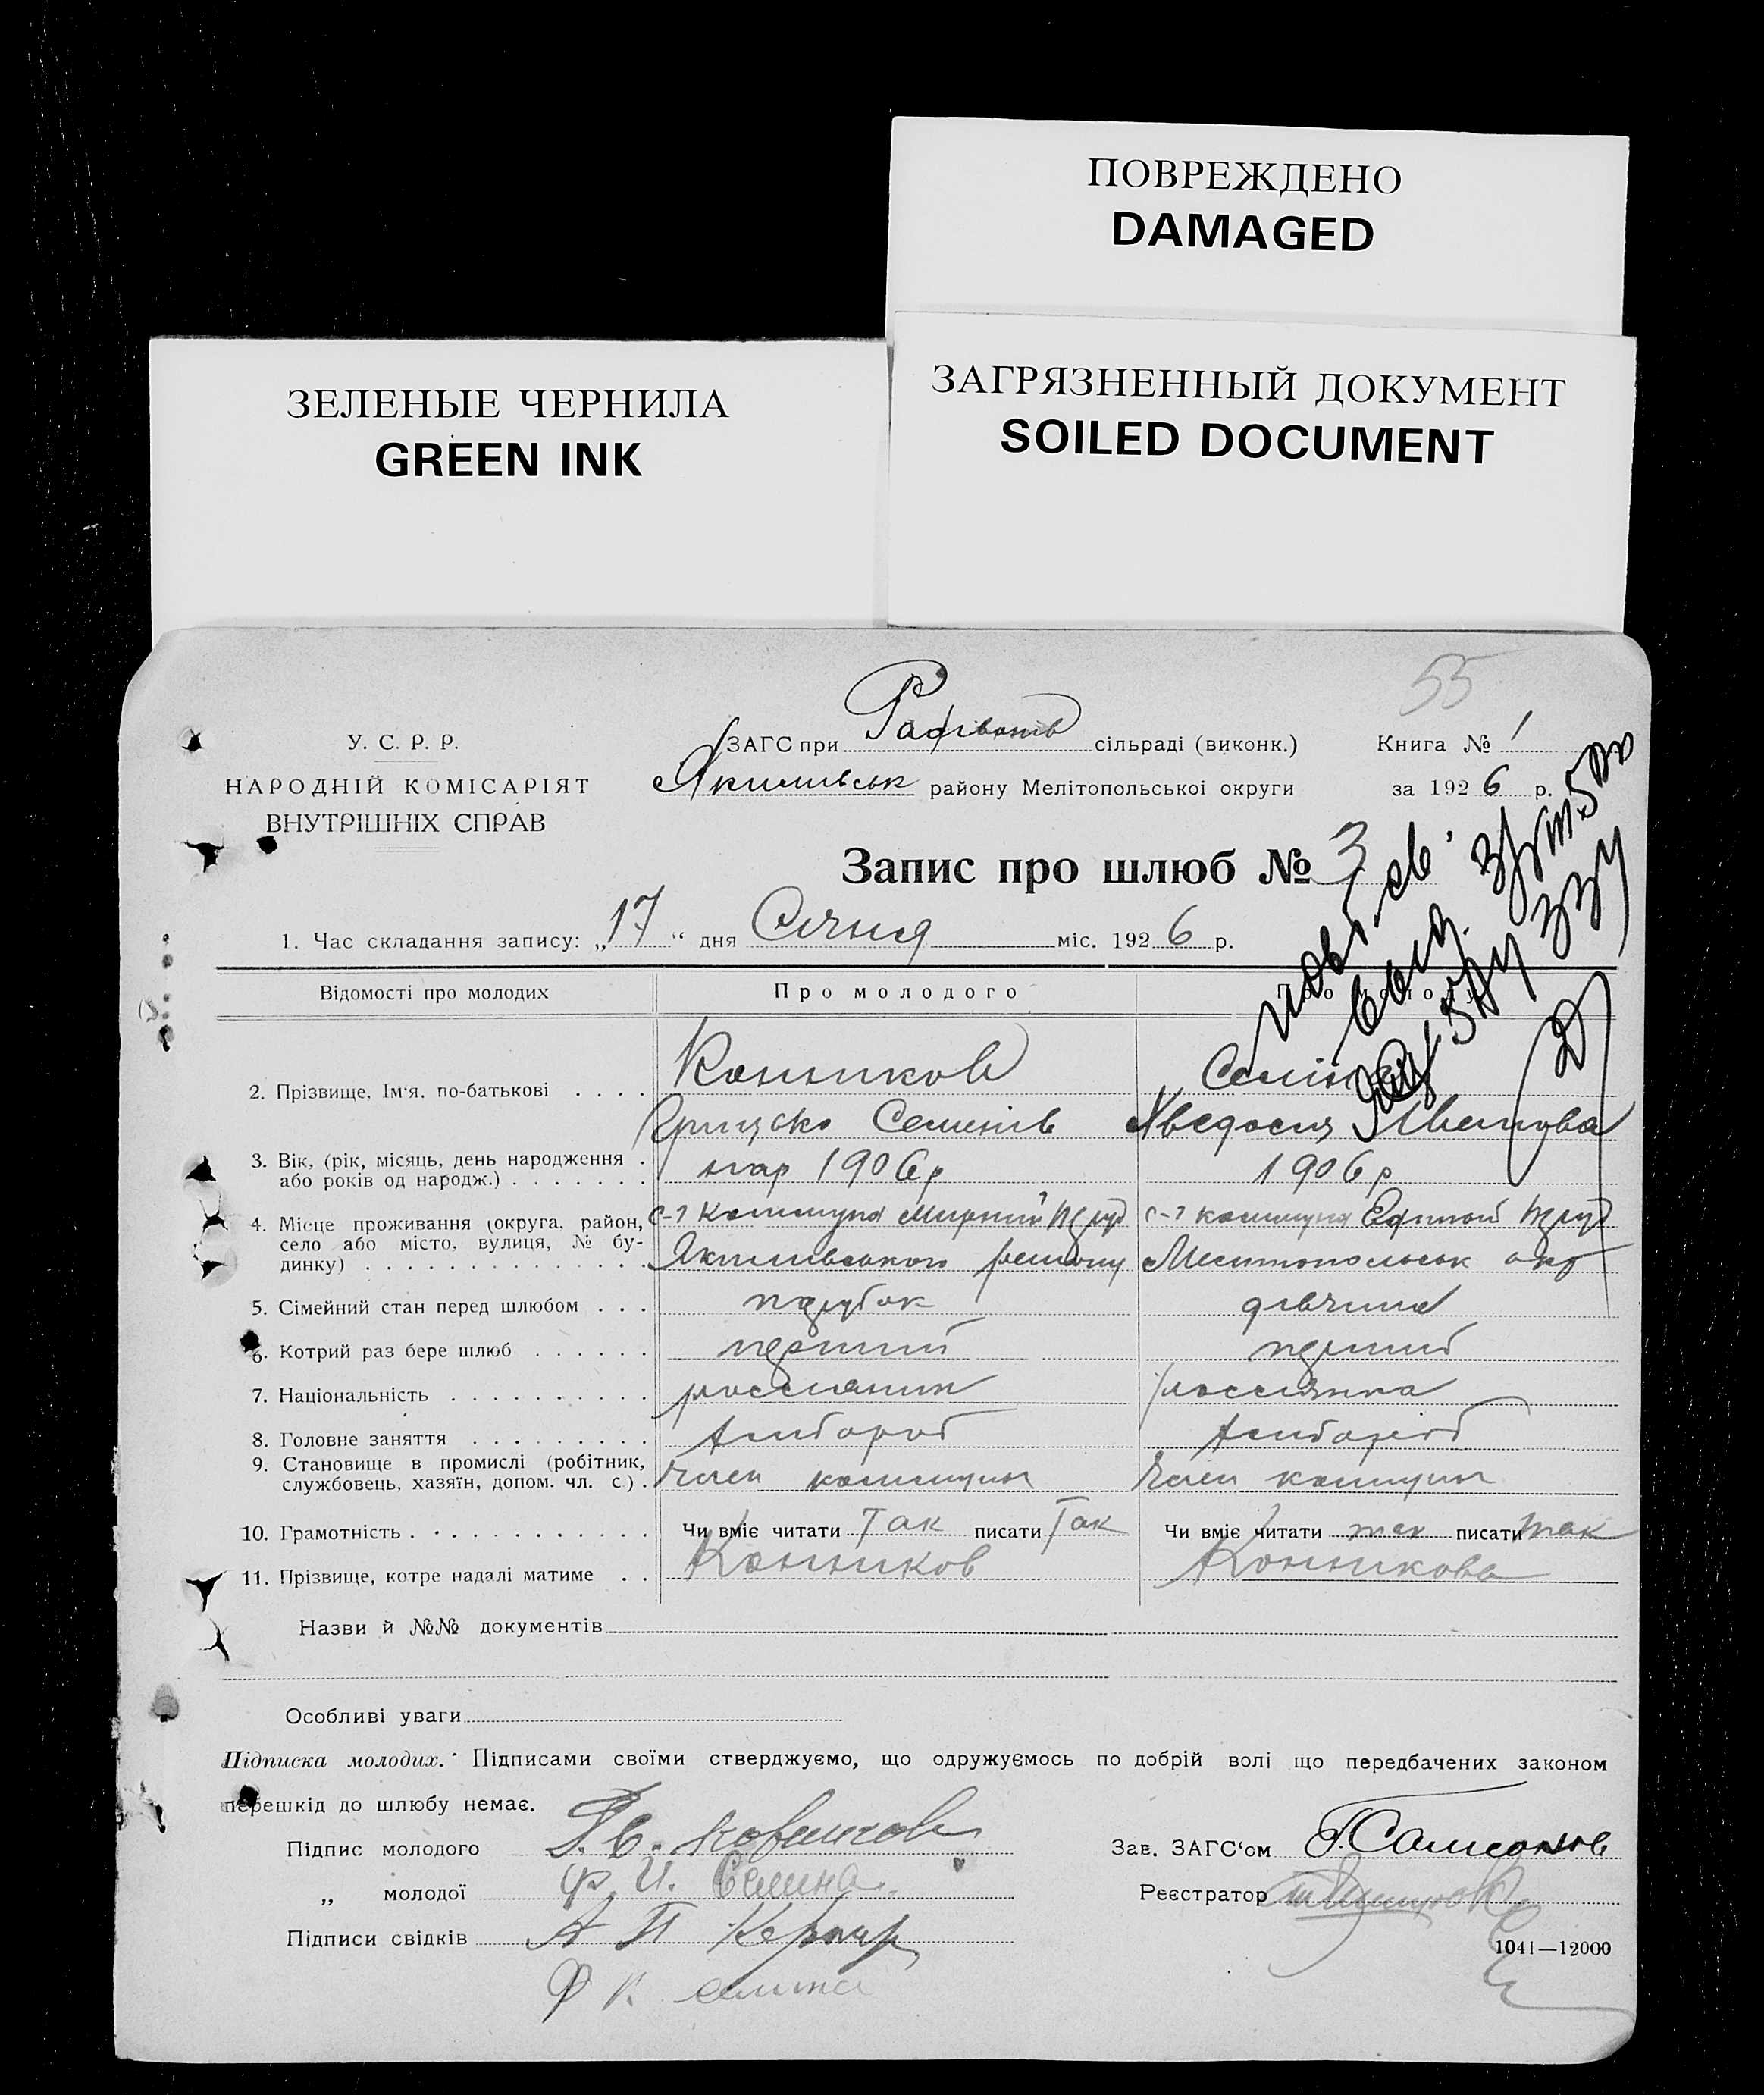 ПОВРЕЖДЕНО
DAMAGED
ЗЕЛЕНЫЕ ЧЕРНИЛА
GREEN INK
ЗАГРЯЗНЕННЫЙ ДОКУМЕНТ
SOILED DOCUMENT
55
У. С. Р. Р.
НАРОДНІЙ КОМІСАРІЯТ
ВНУТРІШНІХ СПРАВ
ЗАГС при сільраді (виконк.) Книга № 1
Якимівськ району Мелітопольської округи за 1926 р.
Запис про шлюб № 3
1. Час складання запису: „17“ дня Січня міс. 1926 р.
Відомості про молодих Про молодого
2. Прізвище, Ім'я, по-батькові . . . . Конников
Грицько Семенів Хведосия
3. Вік, (рік, місяць, день народження . або років од народж.) . . . . . . . 1906 р 1906 р
4. Місце проживання (округа, район, село або місто, вулиця, № будинку) . . . . . . . . . . . . . . с-г коммуна Мирний труд с-г коммуна Единой труд
Якимівського району Мелитопольськ окр
5. Сімейний стан перед шлюбом . . . парубок дівчина
6. Котрий раз бере шлюб . . . . . . перший перший
7. Національність . . . . . . . . . . россиянин россиянка
8. Головне заняття . . . . . . . . . хлибороб хлибороб
9. Становище в промислі (робітник, службовець, хазяїн, допом. чл. с.) . Член коммуны Член коммуны
10. Грамотність . . . . . . . . . . . Чи вміє читати Так писати Так Чи вміє читати так писати так
11. Прізвище, котре надалі матиме . . Конников Конникова
Назви й №№ документів
Особливі уваги
Підписка молодих. Підписами своїми стверджуємо, що одружуємось по добрій волі що передбачених законом
перешкід до шлюбу немає.
Підпис молодого Зав. ЗАГС'ом Г. Самсонов
„ молодої Ф. И. Семина Реєстратор
Підписи свідків А П
1041—12000